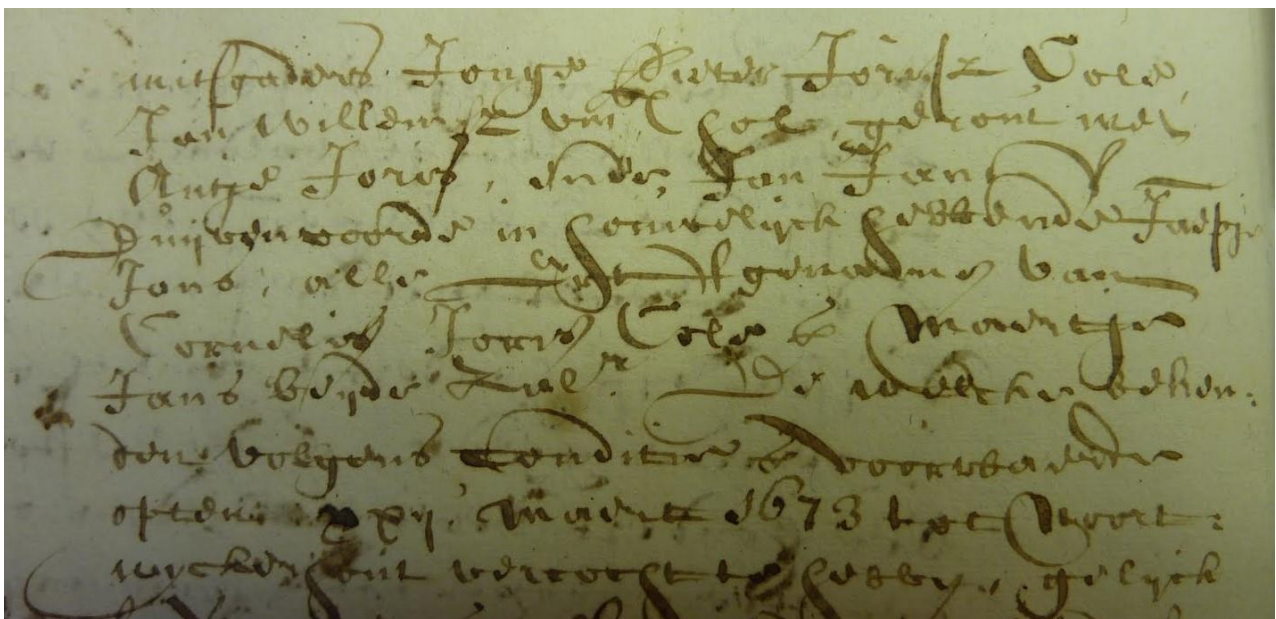 mitsgaders Jonge Pieter Jorisz Cole
Jan Willemsz van Col getrout met
Antje Joris, ende Jan Jansz
Duijvenvoorde in houwelijck hebbende Jaepje
Jans, alle erfgenamen van
Cornelis Joris Cole & Maertje
Jans beijde zalr. De welcke beken:
den volgens Conditie & voorwaerde
opten xxij Maert 1673 tot Noort:
wyckerhout vercocht te hebben, gelyck